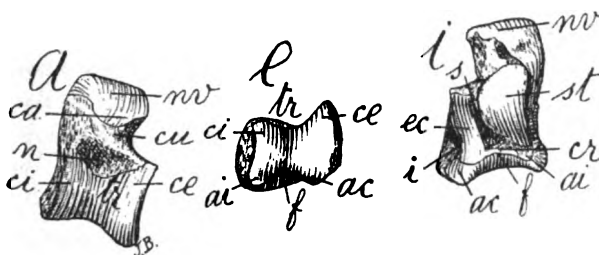 a
nv
ca
cu
n
ci
tr
ce
J.B.
e
tr
ci
ce
ai
f
ac
i
nv
s
st
ec
i
cr
ai
ac
f